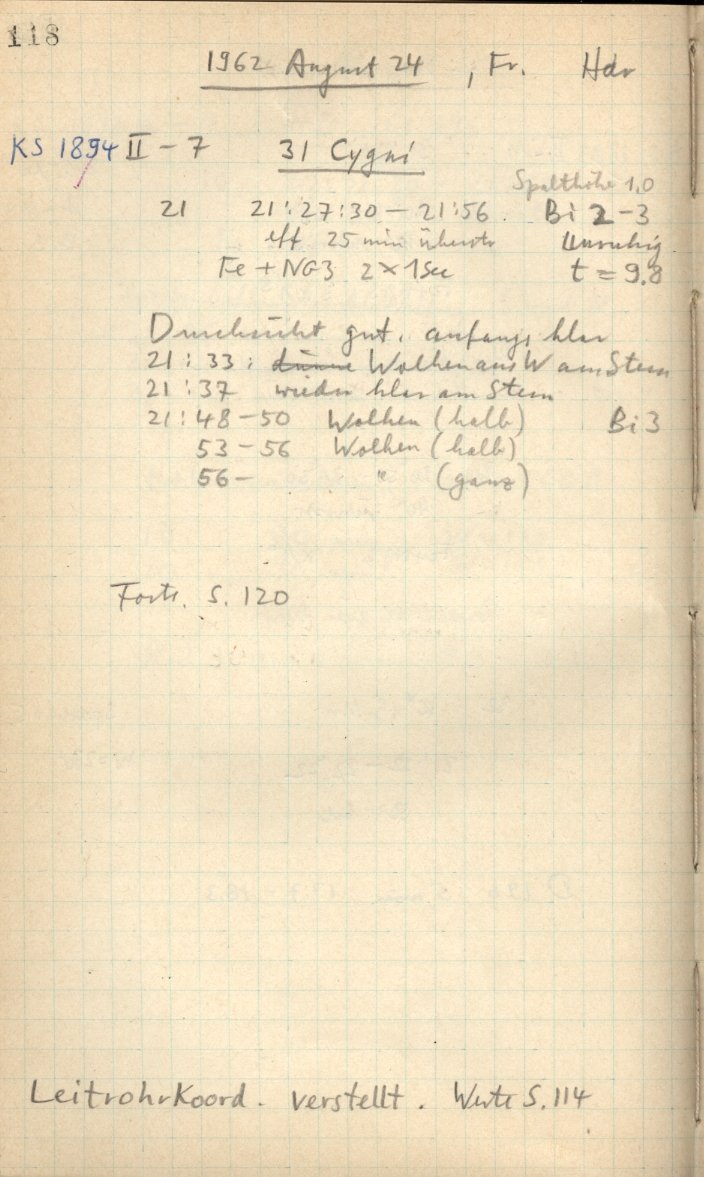 118
1962 August 24, Fr. Hdr
KS 1894 II - 7 31 Cygni
Spalthöhe 1,0
21 21:27:30 - 21:56. Bi 2-3
eff 25 min überstr Unruhig
Fe + NG3 2 x 1 Sec t = 9.8
Durchsicht gut, anfangs klar
21:33: dünne Wolken aus W am Stern
21:37 wieder klar am Stern
21:48-50 Wolken (halb) Bi 3
53-56 Wolken (halb)
56- " (ganz)
Forts. S. 120
Leitrohrkoord. verstellt. Werte S. 114